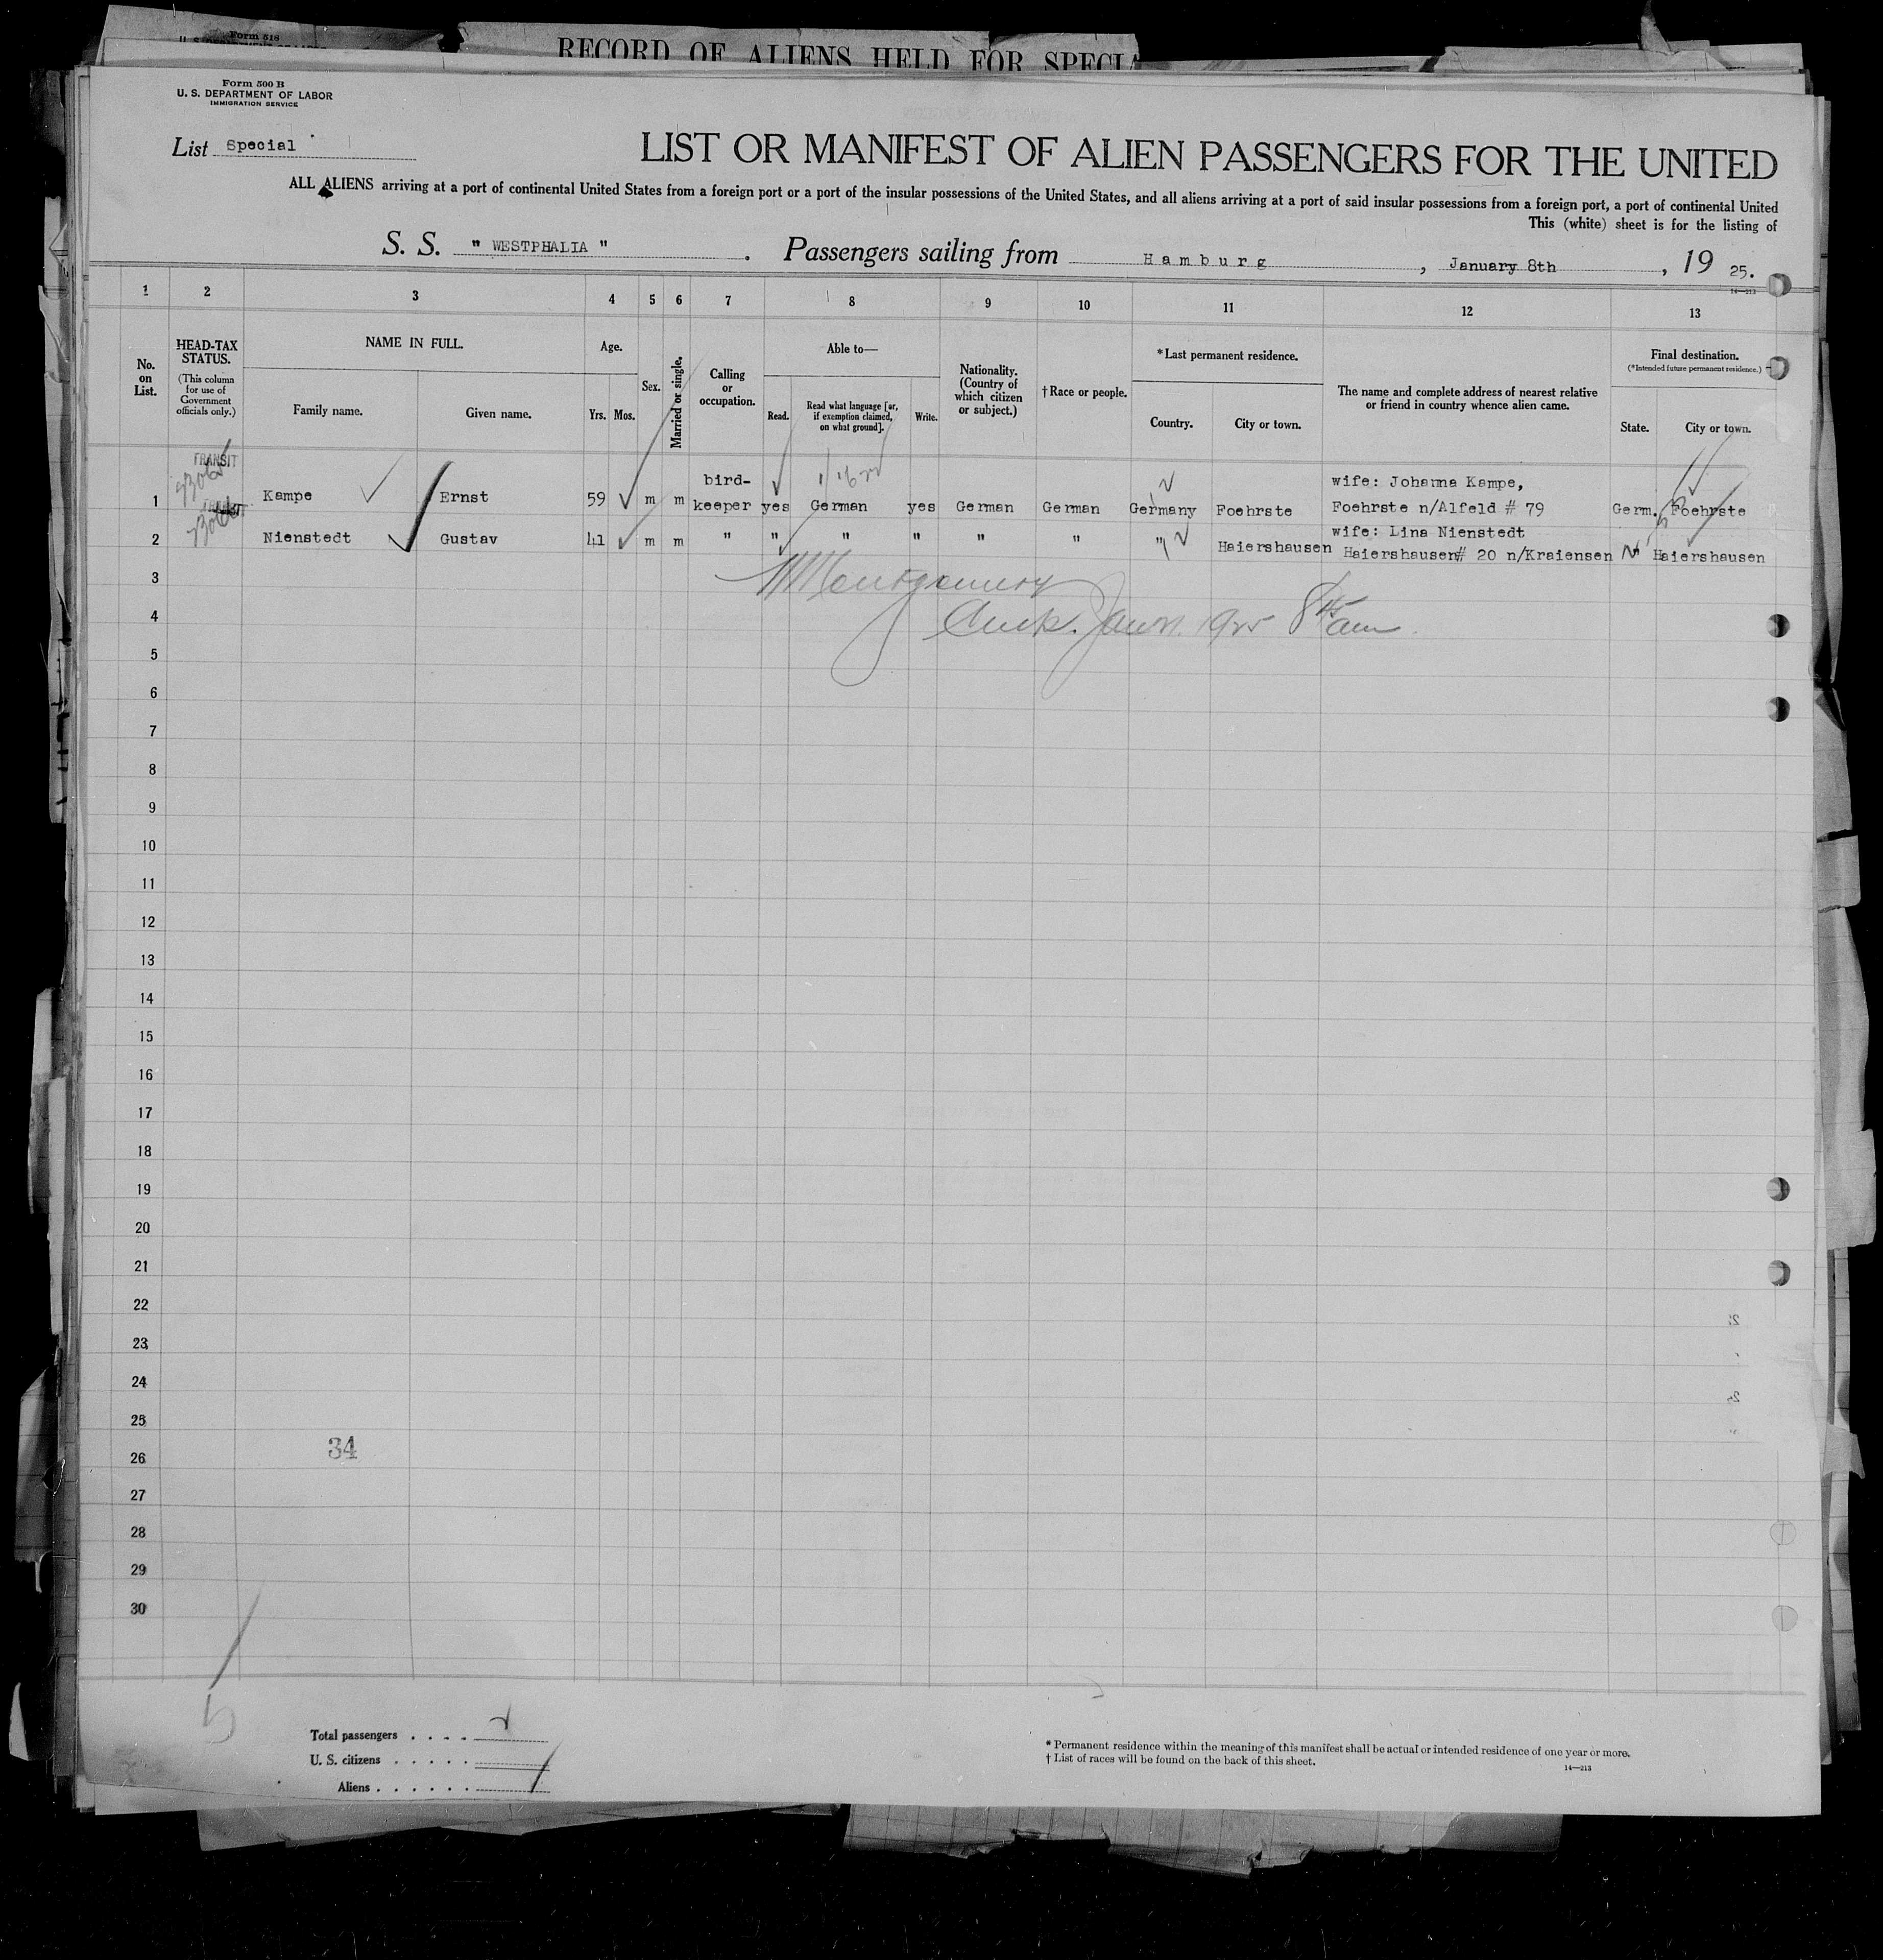 Form 518
RECORD OF ALIENS HELD FOR SPECIA
Form 500 B
U. S. DEPARTMENT OF LABOR
IMMIGRATION SERVICE
List Special
LIST OR MANIFEST OF ALIEN PASSENGERS FOR THE UNITED
ALL ALIENS arriving at a port of continental United States from a foreign port or a port of the insular possessions of the United States, and all aliens arriving at a port of said insular possessions from a foreign port, a port of continental United
This (white) sheet is for the listing of
S. S. " WESTPHALIA ". Passengers sailing from Hamburg, January 8th, 19 25.
14—213
1 2 3 4 5 6 7 8 9 10 11 12 13
No. on List.
HEAD-TAX STATUS.
(This column for use of Government officials only.)
NAME IN FULL.
Family name. Given name.
Age.
Yrs. Mos.
Sex.
Married or single.
Calling or occupation.
Able to—
Read. Read what language [or, if exemption claimed, on what ground]. Write.
Nationality. (Country of which citizen or subject.)
† Race or people.
* Last permanent residence.
Country. City or town.
The name and complete address of nearest relative or friend in country whence alien came.
Final destination.
(*Intended future permanent residence.)
State. City or town.
TRANSIT
bird- wife: Johanna Kampe,
1 Kampe Ernst 59 m m keeper yes German yes German German Germany Foehrste Foehrste n/Alfeld # 79 Germ. Foehrste
wife: Lina Nienstedt
2 Nienstedt Gustav 41 m m " " " " " " " Haiershausen Haiershausen# 20 n/Kraiensen " Haiershausen
3 Montgomery
4
5
6
7
8
9
10
11
12
13
14
15
16
17
18
19
20
21
22
23
24
25
34
26
27
28
29
30
Total passengers
U. S. citizens
Aliens
* Permanent residence within the meaning of this manifest shall be actual or intended residence of one year or more.
† List of races will be found on the back of this sheet.
14—213